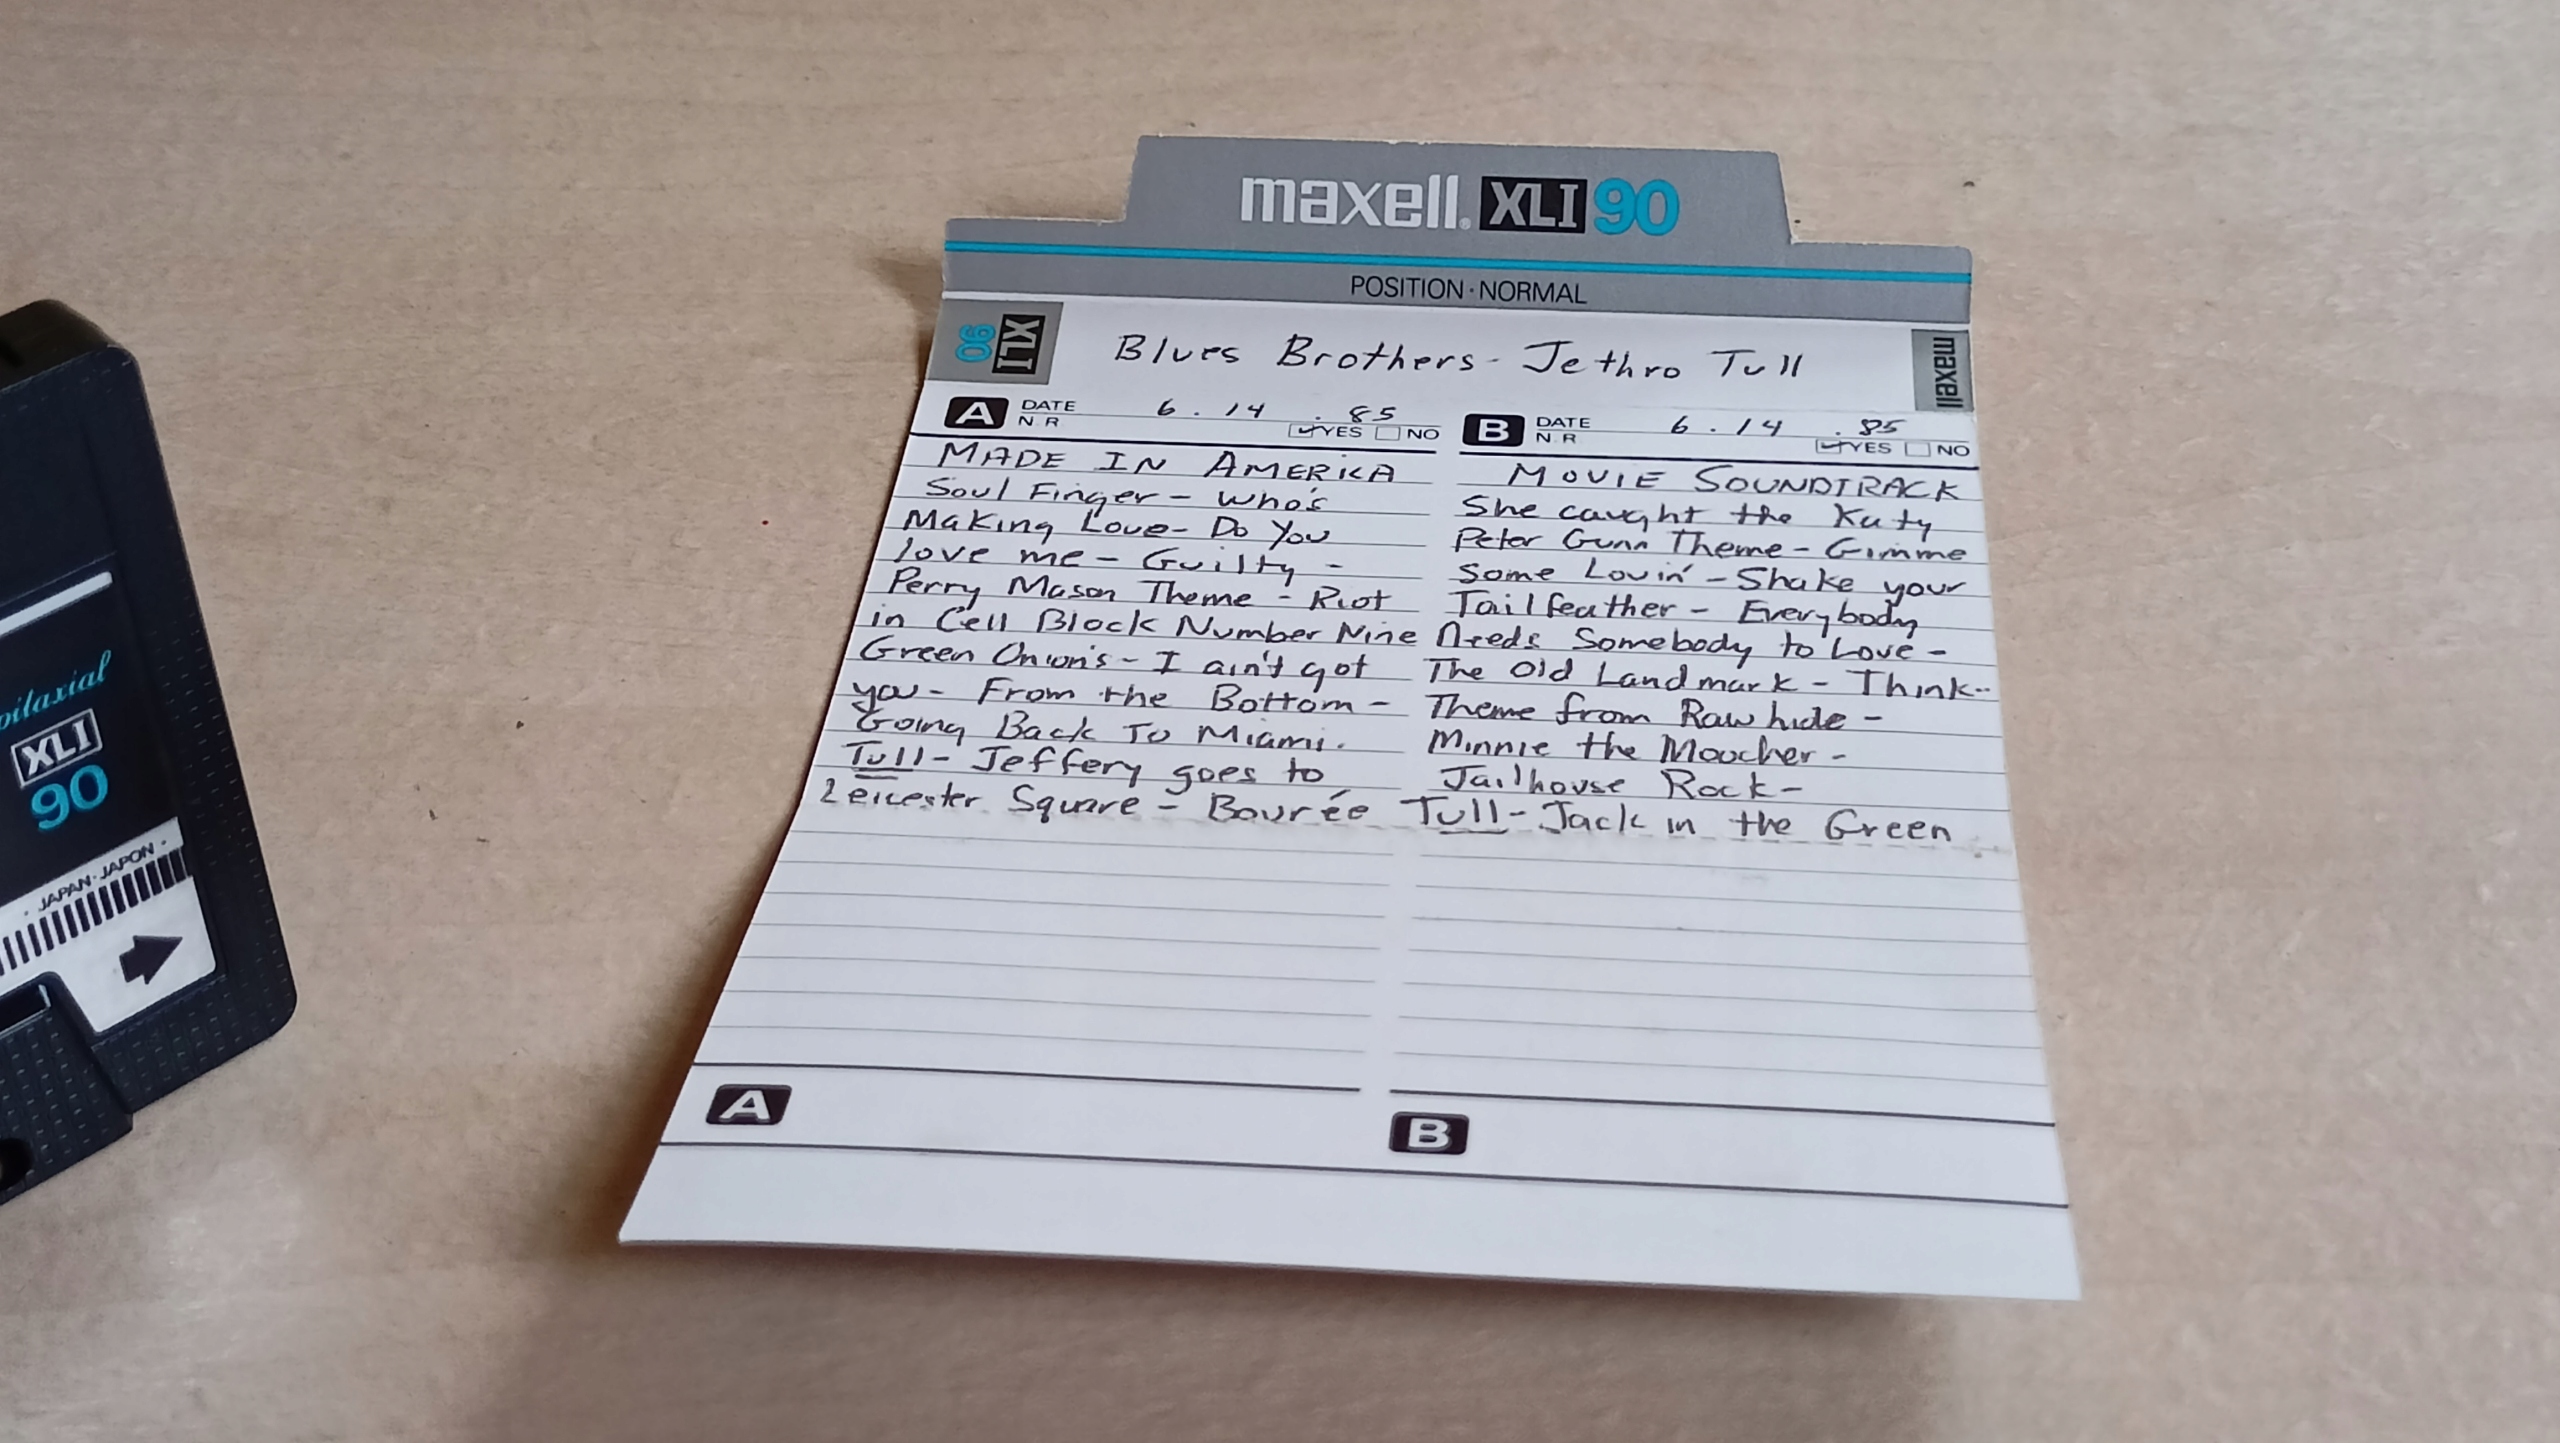 maxell. XLI 90
POSITION · NORMAL
XLI 90
Blues Brothers - Jethro Tull
maxell
A DATE 6 . 14 . 85
N R YES NO
MADE IN AMERICA
Soul Finger - Who's
Making Love - Do You
love me - Guilty -
Perry Mason Theme - Riot
in Cell Block Number Nine
Green Onion's - I ain't got
you - From the Bottom -
Going Back To Miami.
Tull - Jeffery goes to
Leicester Square - Bourée
B DATE 6 . 14 . 85
N R YES NO
MOVIE SOUNDTRACK
She caught the Katy
Peter Gunn Theme - Gimme
Some Lovin' - Shake your
Tailfeather - Everybody
Needs Somebody to Love -
The Old Landmark - Think -
Theme from Rawhide -
Minnie the Moocher -
Jailhouse Rock -
Tull - Jack in the Green
A
B
XLI
90
· JAPAN · JAPON ·